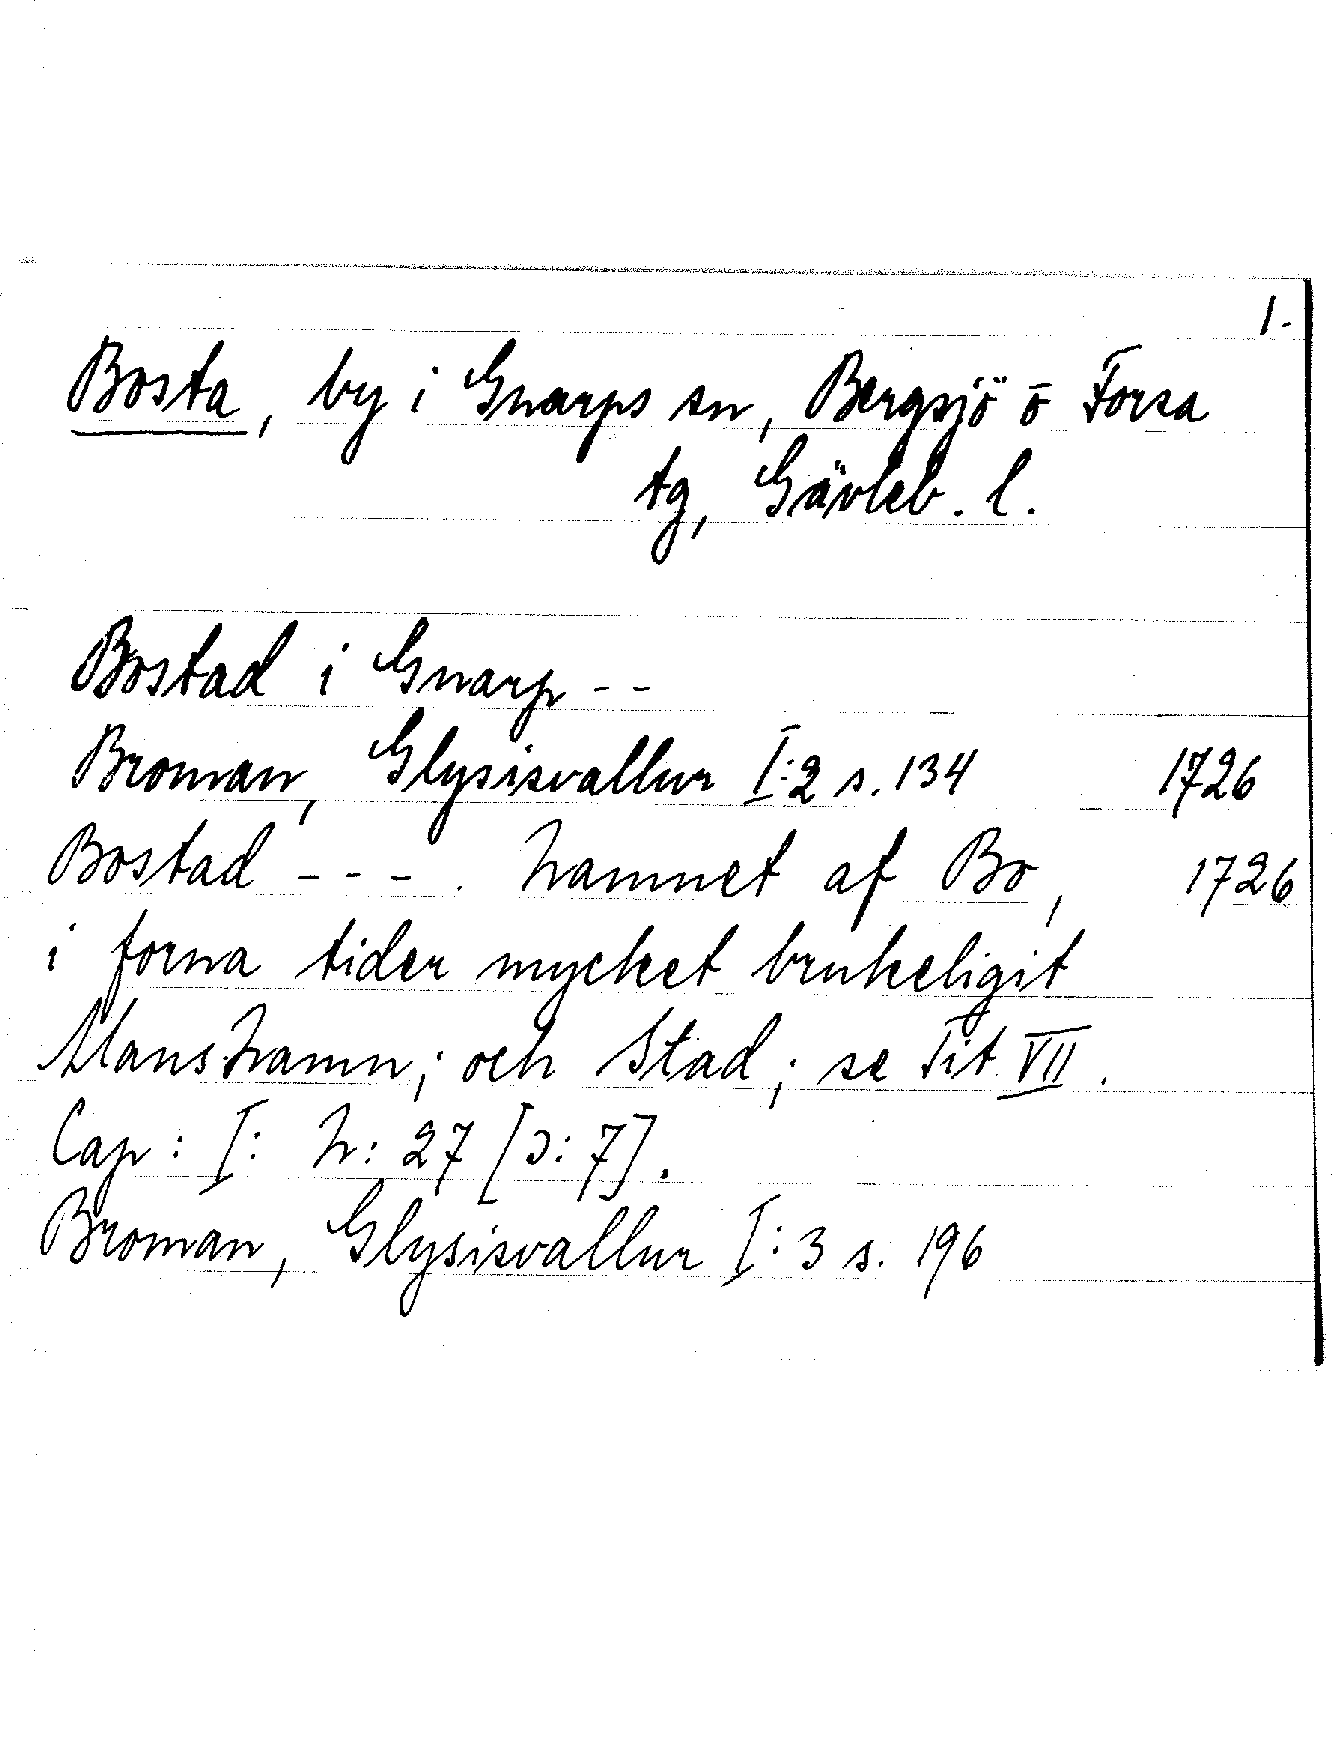 1.
Bosta, by i Gnarps sn, Bergsjö o Forsa
tg, Gävleb. l.
Bostad i Gnarp --
Broman, Glysisvallur I:2 s. 134 1726
Bostad ---. Namnet af Bo, 1726
i forna tider mycket brukeligit
MansNamn; och Stad; se Tit VII.
Cap: I: N: 27 [ɔ: 7].
Broman, Glysisvallur I:3 s. 196